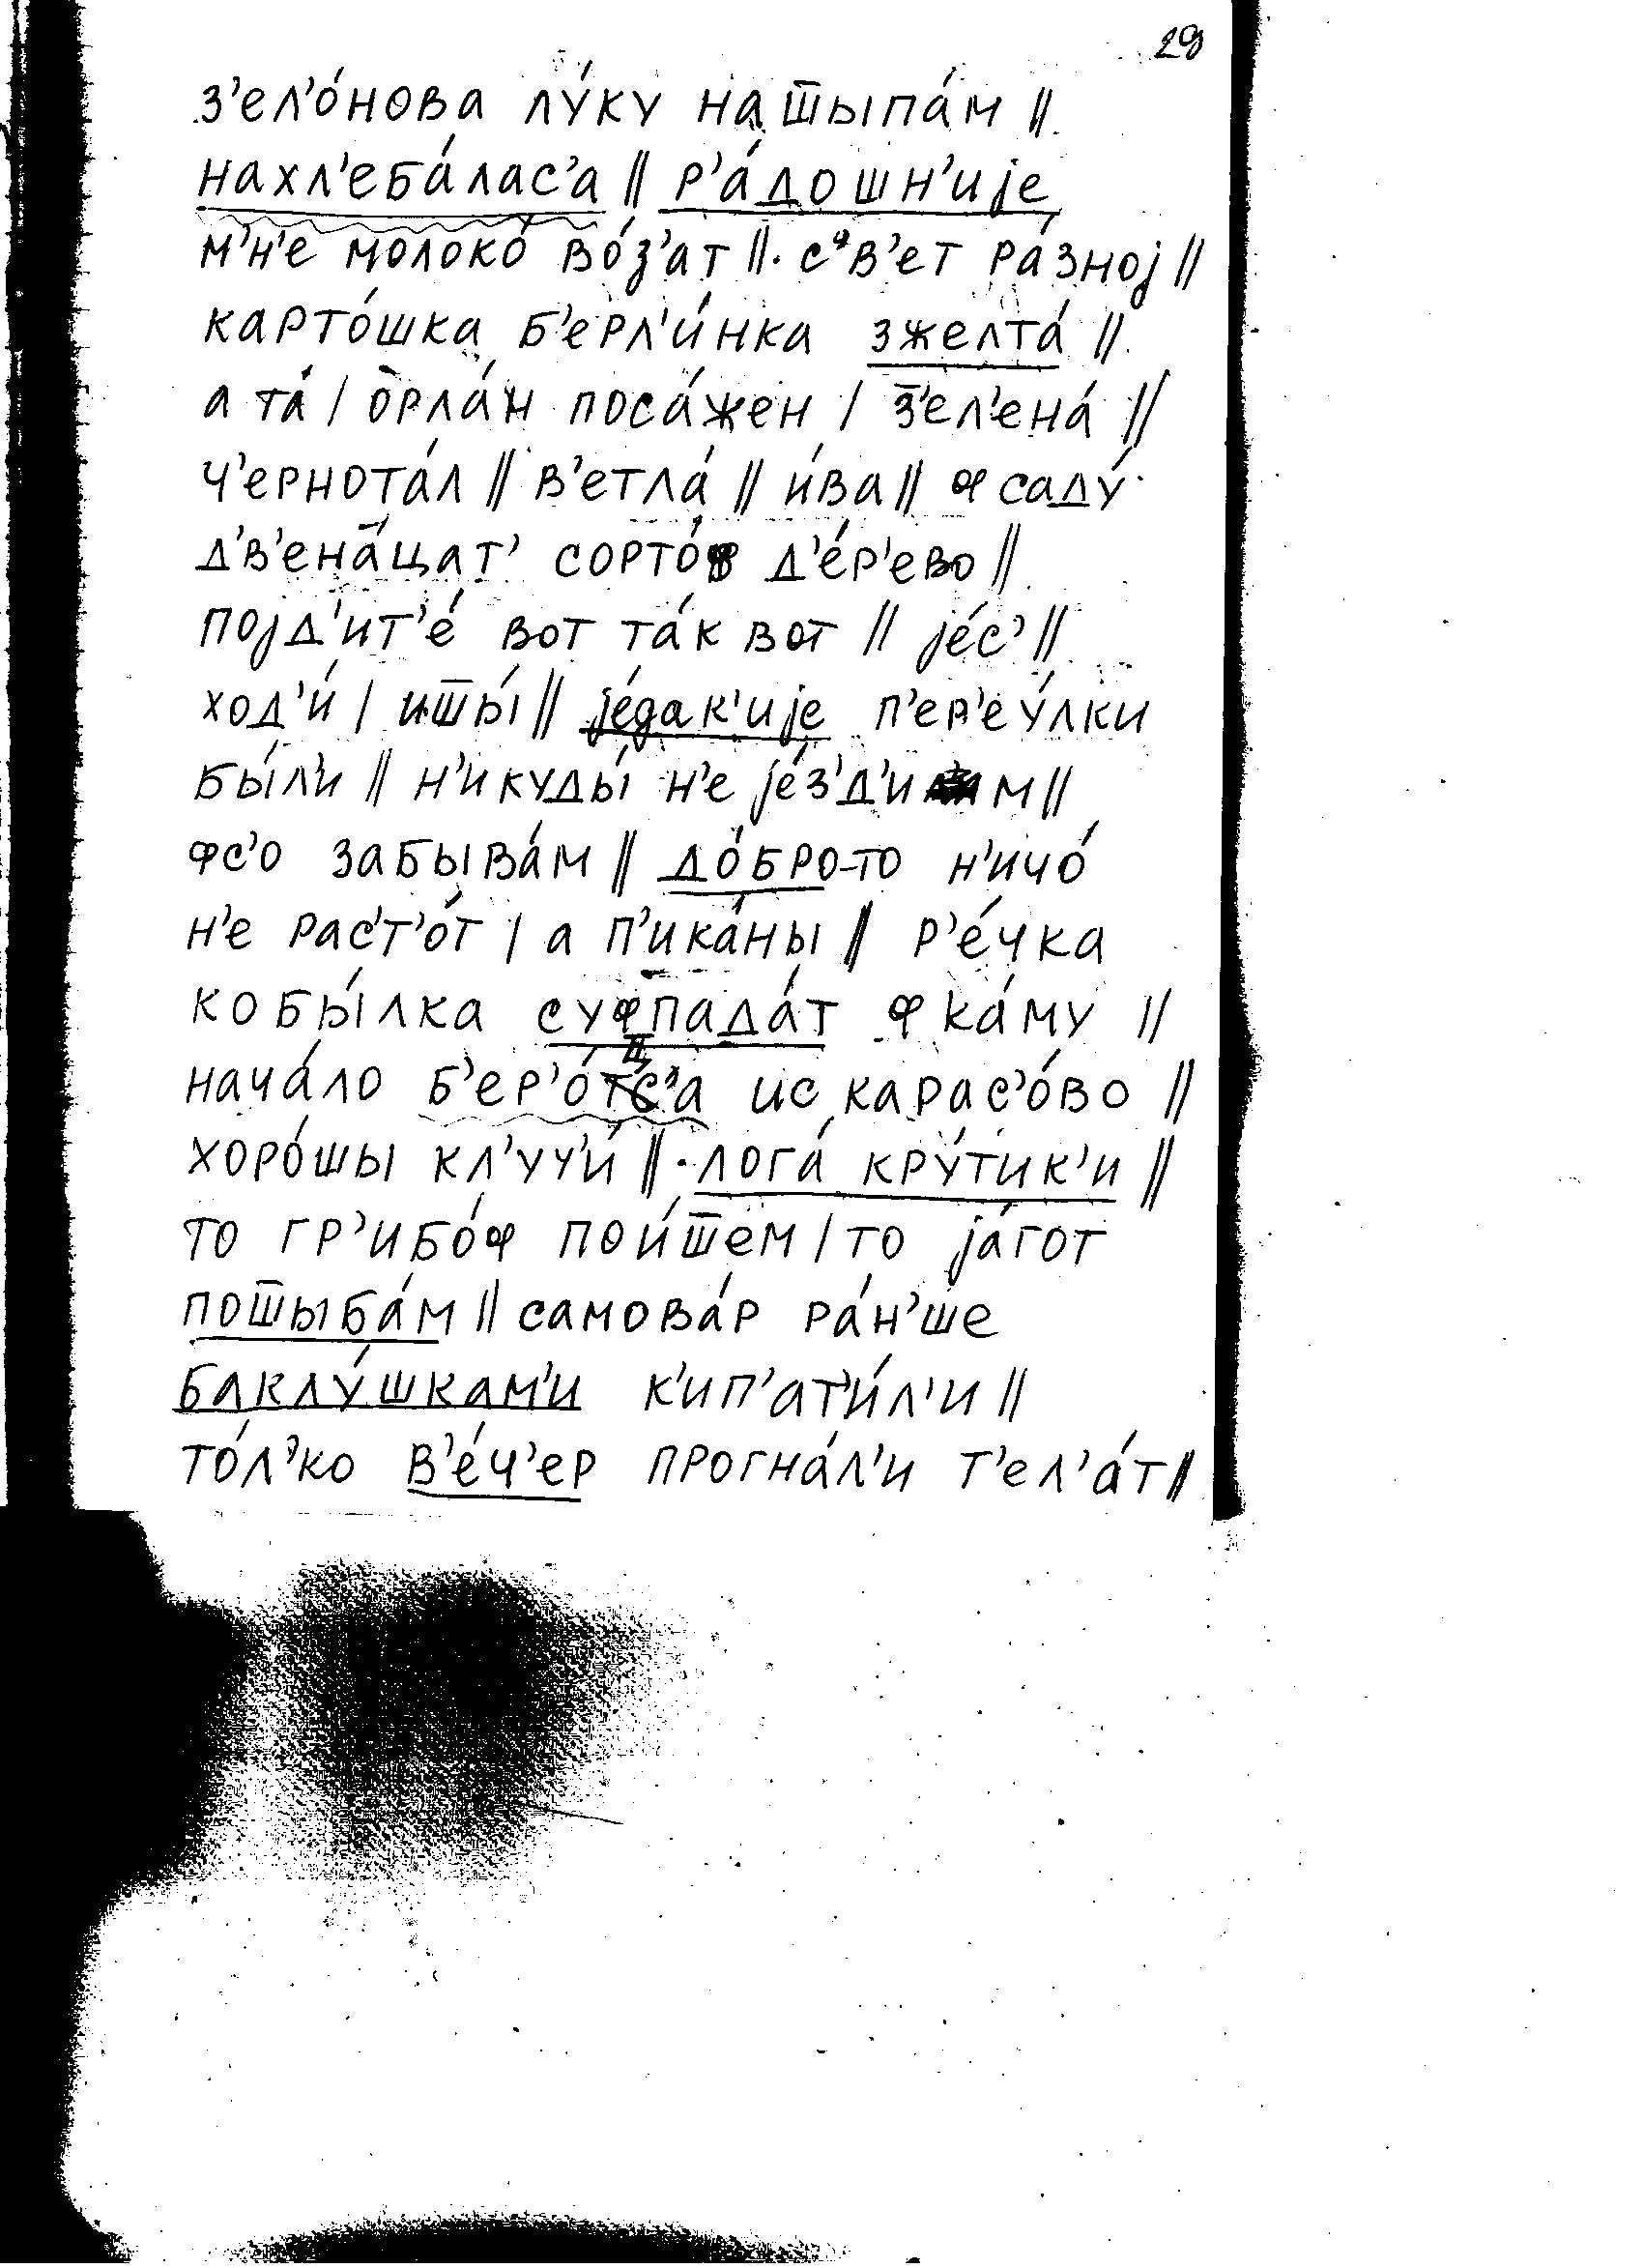 29
з'ел'о́нова лу́ку нашшыпа́м ||
нахл'еба́лас'а || р'а́дошн'ије
м'н'е молоко́ во́з'ат || с'в'ет ра́зној ||
карто́шка б'ерл'и́нка зжелта́ ||
а та́ / орла́н поса́жен / з'ел'ена́ ||
ч'ернота́л || в'етла́ || и́ва || ф саду́
д'в'ена́цат' сорто́ф д'е́р'ево ||
појд'ит'е́ вот та́к вот || је́с' ||
ход'и́ / ишшы́ || је́дак'ије п'ер'еу́лки
бы́л'и || н'икуды́ н'е је́з'д'им ||
фс'о забыва́м || до́бро-то н'ичо́
н'е раст'о́т / а п'ика́ны || р'е́чка
кобы́лка суфпада́т ф ка́му ||
нача́ло б'ер'о́ца ис карас'о́во ||
хоро́шы кл'уч'и́ || лога́ кру́тик'и ||
то гр'ибо́ф пои́шшем / то ја́гот
пошшыба́м || самова́р ра́н'ше
баклу́шкам'и к'ип'ат'и́л'и ||
то́л'ко в'е́ч'ер прогна́л'и т'ел'а́т ||